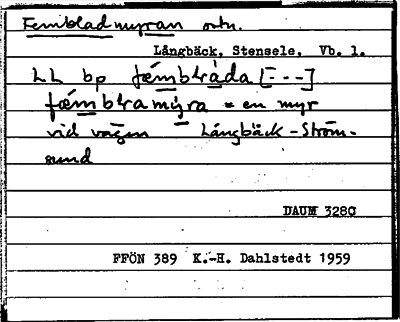 Fembladmyran ortn.
Långbäck, Stensele, Vb. l.
LL bp fœ́mbLràda [---]
fœmbLramýra = en myr
vid vägen Långbäck - Ström-
sund
DAUM 3280
FFÖN 389 K.-H. Dahlstedt 1959